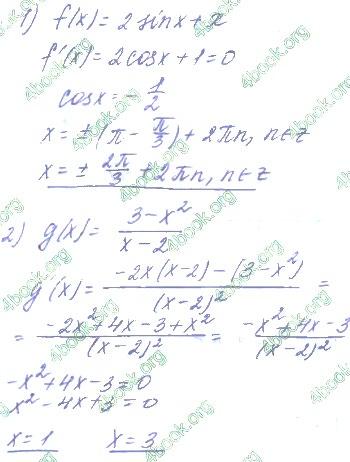 1) f(x) = 2 sinx + x
f'(x) = 2cosx + 1 = 0
cosx = - 1/2
x = ± (π - π/3) + 2πn, n∈Z
x = ± 2π/3 + 2πn, n∈Z
2) g(x) = (3 - x²)/(x - 2)
g'(x) = (-2x(x-2) - (3-x²))/(x-2)² =
= (-2x² + 4x - 3 + x²)/(x-2)² = (-x² + 4x - 3)/(x-2)²
-x² + 4x - 3 = 0
x² - 4x + 3 = 0
x = 1 x = 3
4book.org